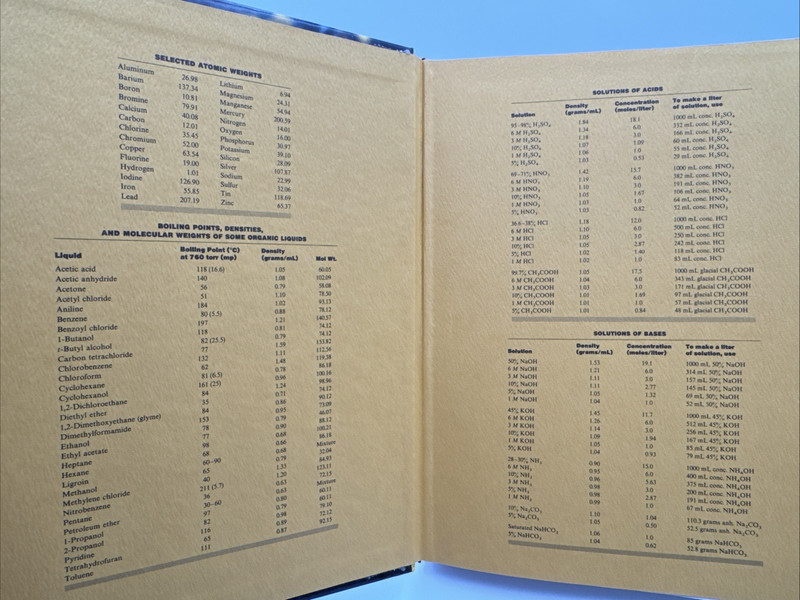 SELECTED ATOMIC WEIGHTS
Aluminum 26.98 Lithium 6.94
Barium 137.34 Magnesium 24.31
Boron 10.81 Manganese 54.94
Bromine 79.91 Mercury 200.59
Calcium 40.08 Nitrogen 14.01
Carbon 12.01 Oxygen 16.00
Chlorine 35.45 Phosphorus 30.97
Chromium 52.00 Potassium 39.10
Copper 63.54 Silicon 28.09
Fluorine 19.00 Silver 107.87
Hydrogen 1.01 Sodium 22.99
Iodine 126.90 Sulfur 32.06
Iron 55.85 Tin 118.69
Lead 207.19 Zinc 65.37
BOILING POINTS, DENSITIES,
AND MOLECULAR WEIGHTS OF SOME ORGANIC LIQUIDS
Boiling Point (°C) Density
Liquid at 760 torr (mp) (grams/mL) Mol Wt.
Acetic acid 118 (16.6) 1.05 60.05
Acetic anhydride 140 1.08 102.09
Acetone 56 0.79 58.08
Acetyl chloride 51 1.10 78.50
Aniline 184 1.02 93.13
Benzene 80 (5.5) 0.88 78.12
Benzoyl chloride 197 1.21 140.57
1-Butanol 118 0.81 74.12
t-Butyl alcohol 82 (25.5) 0.79 74.12
Carbon tetrachloride 77 1.59 153.82
Chlorobenzene 132 1.11 112.56
Chloroform 62 1.48 119.38
Cyclohexane 81 (6.5) 0.78
Cyclohexanol 161 (25) 0.96 100.16
1,2-Dichloroethane 84 1.24 98.96
Diethyl ether 35 0.71 74.12
1,2-Dimethoxyethane (glyme) 84 0.86 90.12
Dimethylformamide 153 0.95 73.09
Ethanol 78 0.79 46.07
Ethyl acetate 77 0.90 88.12
Heptane 98 0.68 100.21
Hexane 68 0.66 86.18
Ligroin 60–90 0.68 Mixture
Methanol 65 0.79 32.04
Methylene chloride 40 1.33 84.93
Nitrobenzene 211 (5.7) 1.20 123.11
Pentane 36 0.63 72.15
Petroleum ether 30–60 0.63 Mixture
1-Propanol 97 0.80 60.11
2-Propanol 82 0.79 60.11
Pyridine 116 0.98 79.10
Tetrahydrofuran 65 0.89 72.12
Toluene 111 0.87 92.15
SOLUTIONS OF ACIDS
Density Concentration To make a liter
Solution (grams/mL) (moles/liter) of solution, use
95–98% H₂SO₄ 1.84 18.1 1000 mL conc. H₂SO₄
6 M H₂SO₄ 1.34 6.0 332 mL conc. H₂SO₄
3 M H₂SO₄ 1.18 3.0 166 mL conc. H₂SO₄
10% H₂SO₄ 1.07 1.09 60 mL conc. H₂SO₄
1 M H₂SO₄ 1.06 1.0 55 mL conc. H₂SO₄
5% H₂SO₄ 1.03 0.53 29 mL conc. H₂SO₄
69–71% HNO₃ 1.42 15.7 1000 mL conc. HNO₃
6 M HNO₃ 1.19 6.0 382 mL conc. HNO₃
3 M HNO₃ 1.10 3.0 191 mL conc. HNO₃
10% HNO₃ 1.05 1.67 106 mL conc. HNO₃
1 M HNO₃ 1.03 1.0 64 mL conc. HNO₃
5% HNO₃ 1.03 0.82 52 mL conc. HNO₃
36.6–38% HCl 1.18 12.0 1000 mL conc. HCl
6 M HCl 1.10 6.0 500 mL conc. HCl
3 M HCl 1.05 3.0 250 mL conc. HCl
10% HCl 1.05 2.87 242 mL conc. HCl
5% HCl 1.02 1.40 118 mL conc. HCl
1 M HCl 1.02 1.0 83 mL conc. HCl
99.7% CH₃COOH 1.05 17.5 1000 mL glacial CH₃COOH
6 M CH₃COOH 1.04 6.0 343 mL glacial CH₃COOH
3 M CH₃COOH 1.03 3.0 171 mL glacial CH₃COOH
10% CH₃COOH 1.01 1.69 97 mL glacial CH₃COOH
1 M CH₃COOH 1.01 1.0 57 mL glacial CH₃COOH
5% CH₃COOH 1.01 0.84 48 mL glacial CH₃COOH
SOLUTIONS OF BASES
Density Concentration To make a liter
Solution (grams/mL) (moles/liter) of solution, use
50% NaOH 1.53 19.1 1000 mL 50% NaOH
6 M NaOH 1.21 6.0 314 mL 50% NaOH
3 M NaOH 1.11 3.0 157 mL 50% NaOH
10% NaOH 1.11 2.77 145 mL 50% NaOH
5% NaOH 1.05 1.32 69 mL 50% NaOH
1 M NaOH 1.04 1.0 52 mL 50% NaOH
45% KOH 1.45 11.7 1000 mL 45% KOH
6 M KOH 1.26 6.0 512 mL 45% KOH
3 M KOH 1.14 3.0 256 mL 45% KOH
10% KOH 1.09 1.94 167 mL 45% KOH
1 M KOH 1.05 1.0 85 mL 45% KOH
5% KOH 1.04 0.93 79 mL 45% KOH
28–30% NH₃ 0.90 15.0 1000 mL conc. NH₄OH
6 M NH₃ 0.95 6.0 400 mL conc. NH₄OH
10% NH₃ 0.96 5.63 375 mL conc. NH₄OH
3 M NH₃ 0.98 3.0 200 mL conc. NH₄OH
5% NH₃ 0.98 2.87 191 mL conc. NH₄OH
1 M NH₃ 0.99 1.0 67 mL conc. NH₄OH
10% Na₂CO₃ 1.10 1.04 110.3 grams anh. Na₂CO₃
5% Na₂CO₃ 1.05 0.50 52.5 grams anh. Na₂CO₃
Saturated NaHCO₃ 1.06 1.0 85 grams NaHCO₃
5% NaHCO₃ 1.04 0.62 52.8 grams NaHCO₃